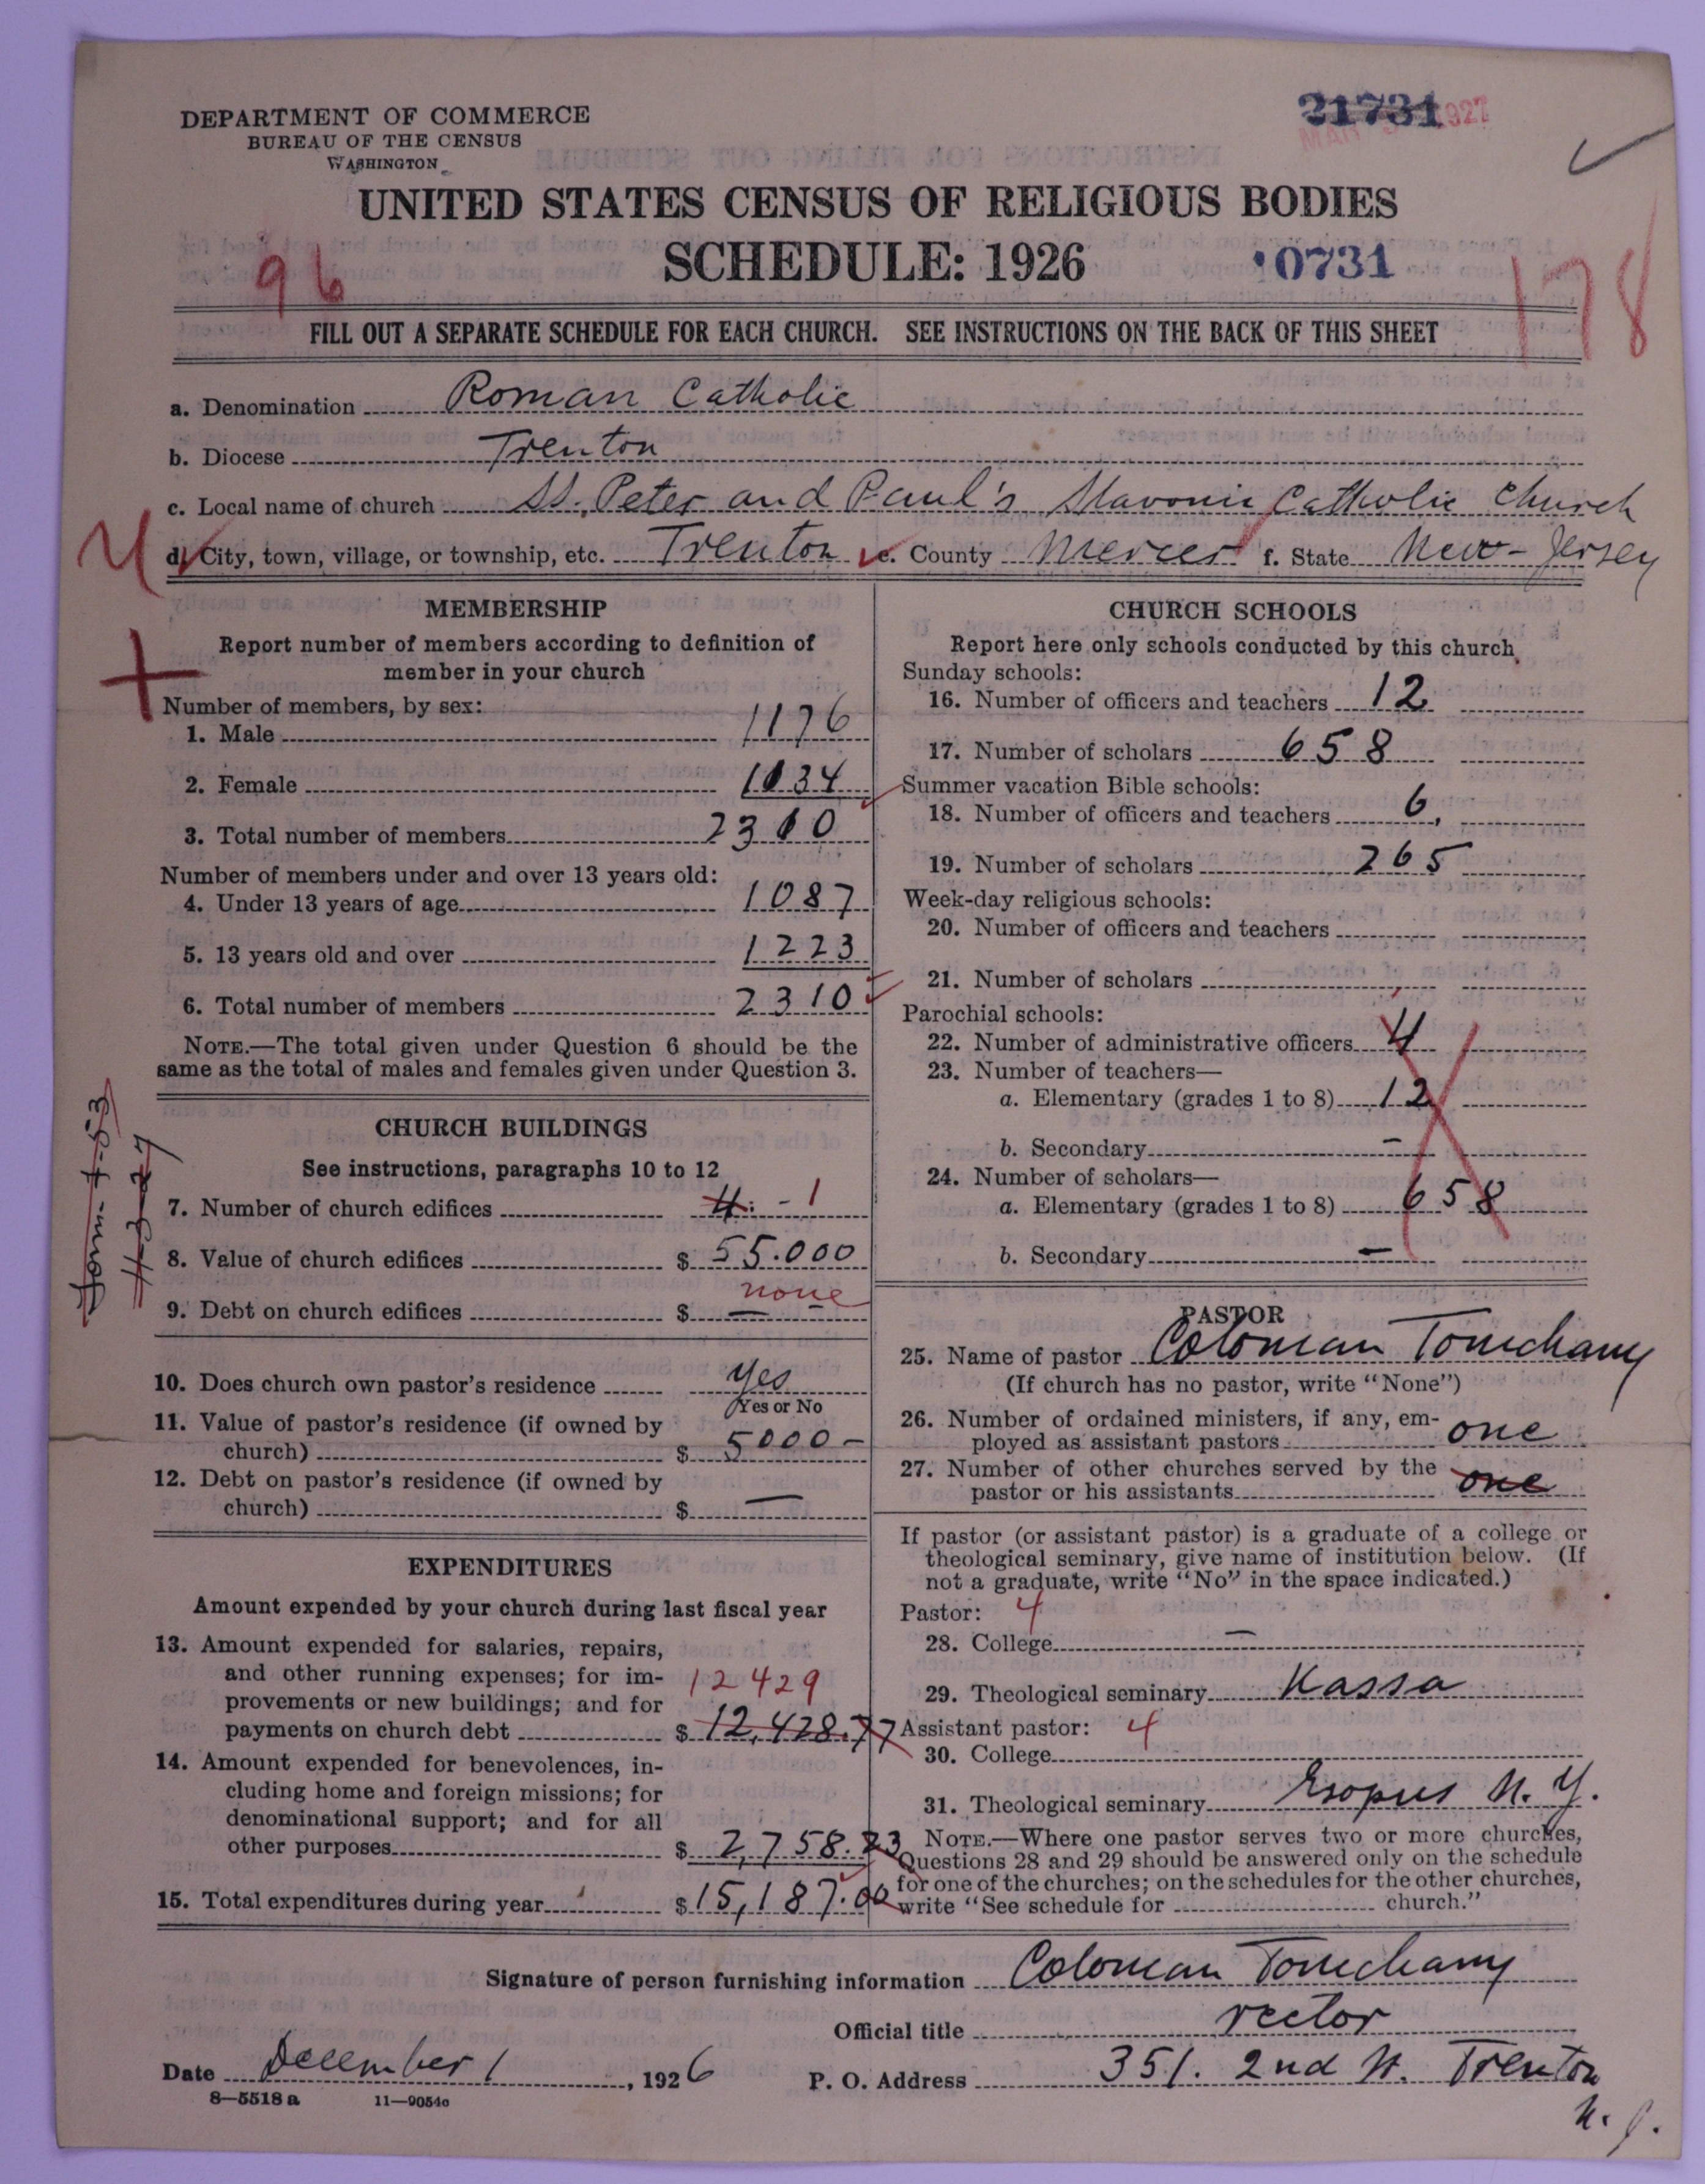 DEPARTMENT OF COMMERCE
BUREAU OF THE CENSUS
WASHINGTON
21731
MAR 1927
UNITED STATES CENSUS OF RELIGIOUS BODIES
SCHEDULE: 1926
96
0731
178
FILL OUT A SEPARATE SCHEDULE FOR EACH CHURCH. SEE INSTRUCTIONS ON THE BACK OF THIS SHEET
a. Denomination Roman Catholic
b. Diocese Trenton
c. Local name of church SS. Peter and Paul's Slavonic Catholic Church
d. City, town, village, or township, etc. Trenton e. County Mercer f. State New-Jersey
MEMBERSHIP
Report number of members according to definition of
member in your church
Number of members, by sex:
1. Male 1176
2. Female 1134
3. Total number of members 2310
Number of members under and over 13 years old:
4. Under 13 years of age 1087
5. 13 years old and over 1223
6. Total number of members 2310
NOTE.—The total given under Question 6 should be the
same as the total of males and females given under Question 3.
CHURCH BUILDINGS
See instructions, paragraphs 10 to 12
7. Number of church edifices 4. - 1
8. Value of church edifices $ 55.000
none
9. Debt on church edifices $ —
10. Does church own pastor's residence yes
Yes or No
11. Value of pastor's residence (if owned by
church) $ 5000-
12. Debt on pastor's residence (if owned by
church) $ —
EXPENDITURES
Amount expended by your church during last fiscal year
13. Amount expended for salaries, repairs,
and other running expenses; for im-
12429
provements or new buildings; and for
payments on church debt $ 12,428.77
14. Amount expended for benevolences, in-
cluding home and foreign missions; for
denominational support; and for all
other purposes $ 2,758.23
15. Total expenditures during year $ 15,187.00
CHURCH SCHOOLS
Report here only schools conducted by this church
Sunday schools:
16. Number of officers and teachers 12
17. Number of scholars 658
Summer vacation Bible schools:
18. Number of officers and teachers 6,
19. Number of scholars 265
Week-day religious schools:
20. Number of officers and teachers
21. Number of scholars
Parochial schools:
22. Number of administrative officers 4
23. Number of teachers—
a. Elementary (grades 1 to 8) 12
b. Secondary -
24. Number of scholars—
a. Elementary (grades 1 to 8) 658
b. Secondary —
PASTOR
25. Name of pastor Coloman Tomchany
(If church has no pastor, write "None")
26. Number of ordained ministers, if any, em-
ployed as assistant pastors one
27. Number of other churches served by the
pastor or his assistants one
If pastor (or assistant pastor) is a graduate of a college or
theological seminary, give name of institution below. (If
not a graduate, write "No" in the space indicated.)
Pastor: 4
28. College —
29. Theological seminary Kassa
Assistant pastor: 4
30. College
31. Theological seminary Esopus N. Y.
NOTE.—Where one pastor serves two or more churches,
Questions 28 and 29 should be answered only on the schedule
for one of the churches; on the schedules for the other churches,
write "See schedule for church."
Signature of person furnishing information Coloman Tomchany
Official title rector
Date December 1, 1926 P. O. Address 351. 2nd St. Trenton
N. J.
8—5518 a 11—9054c